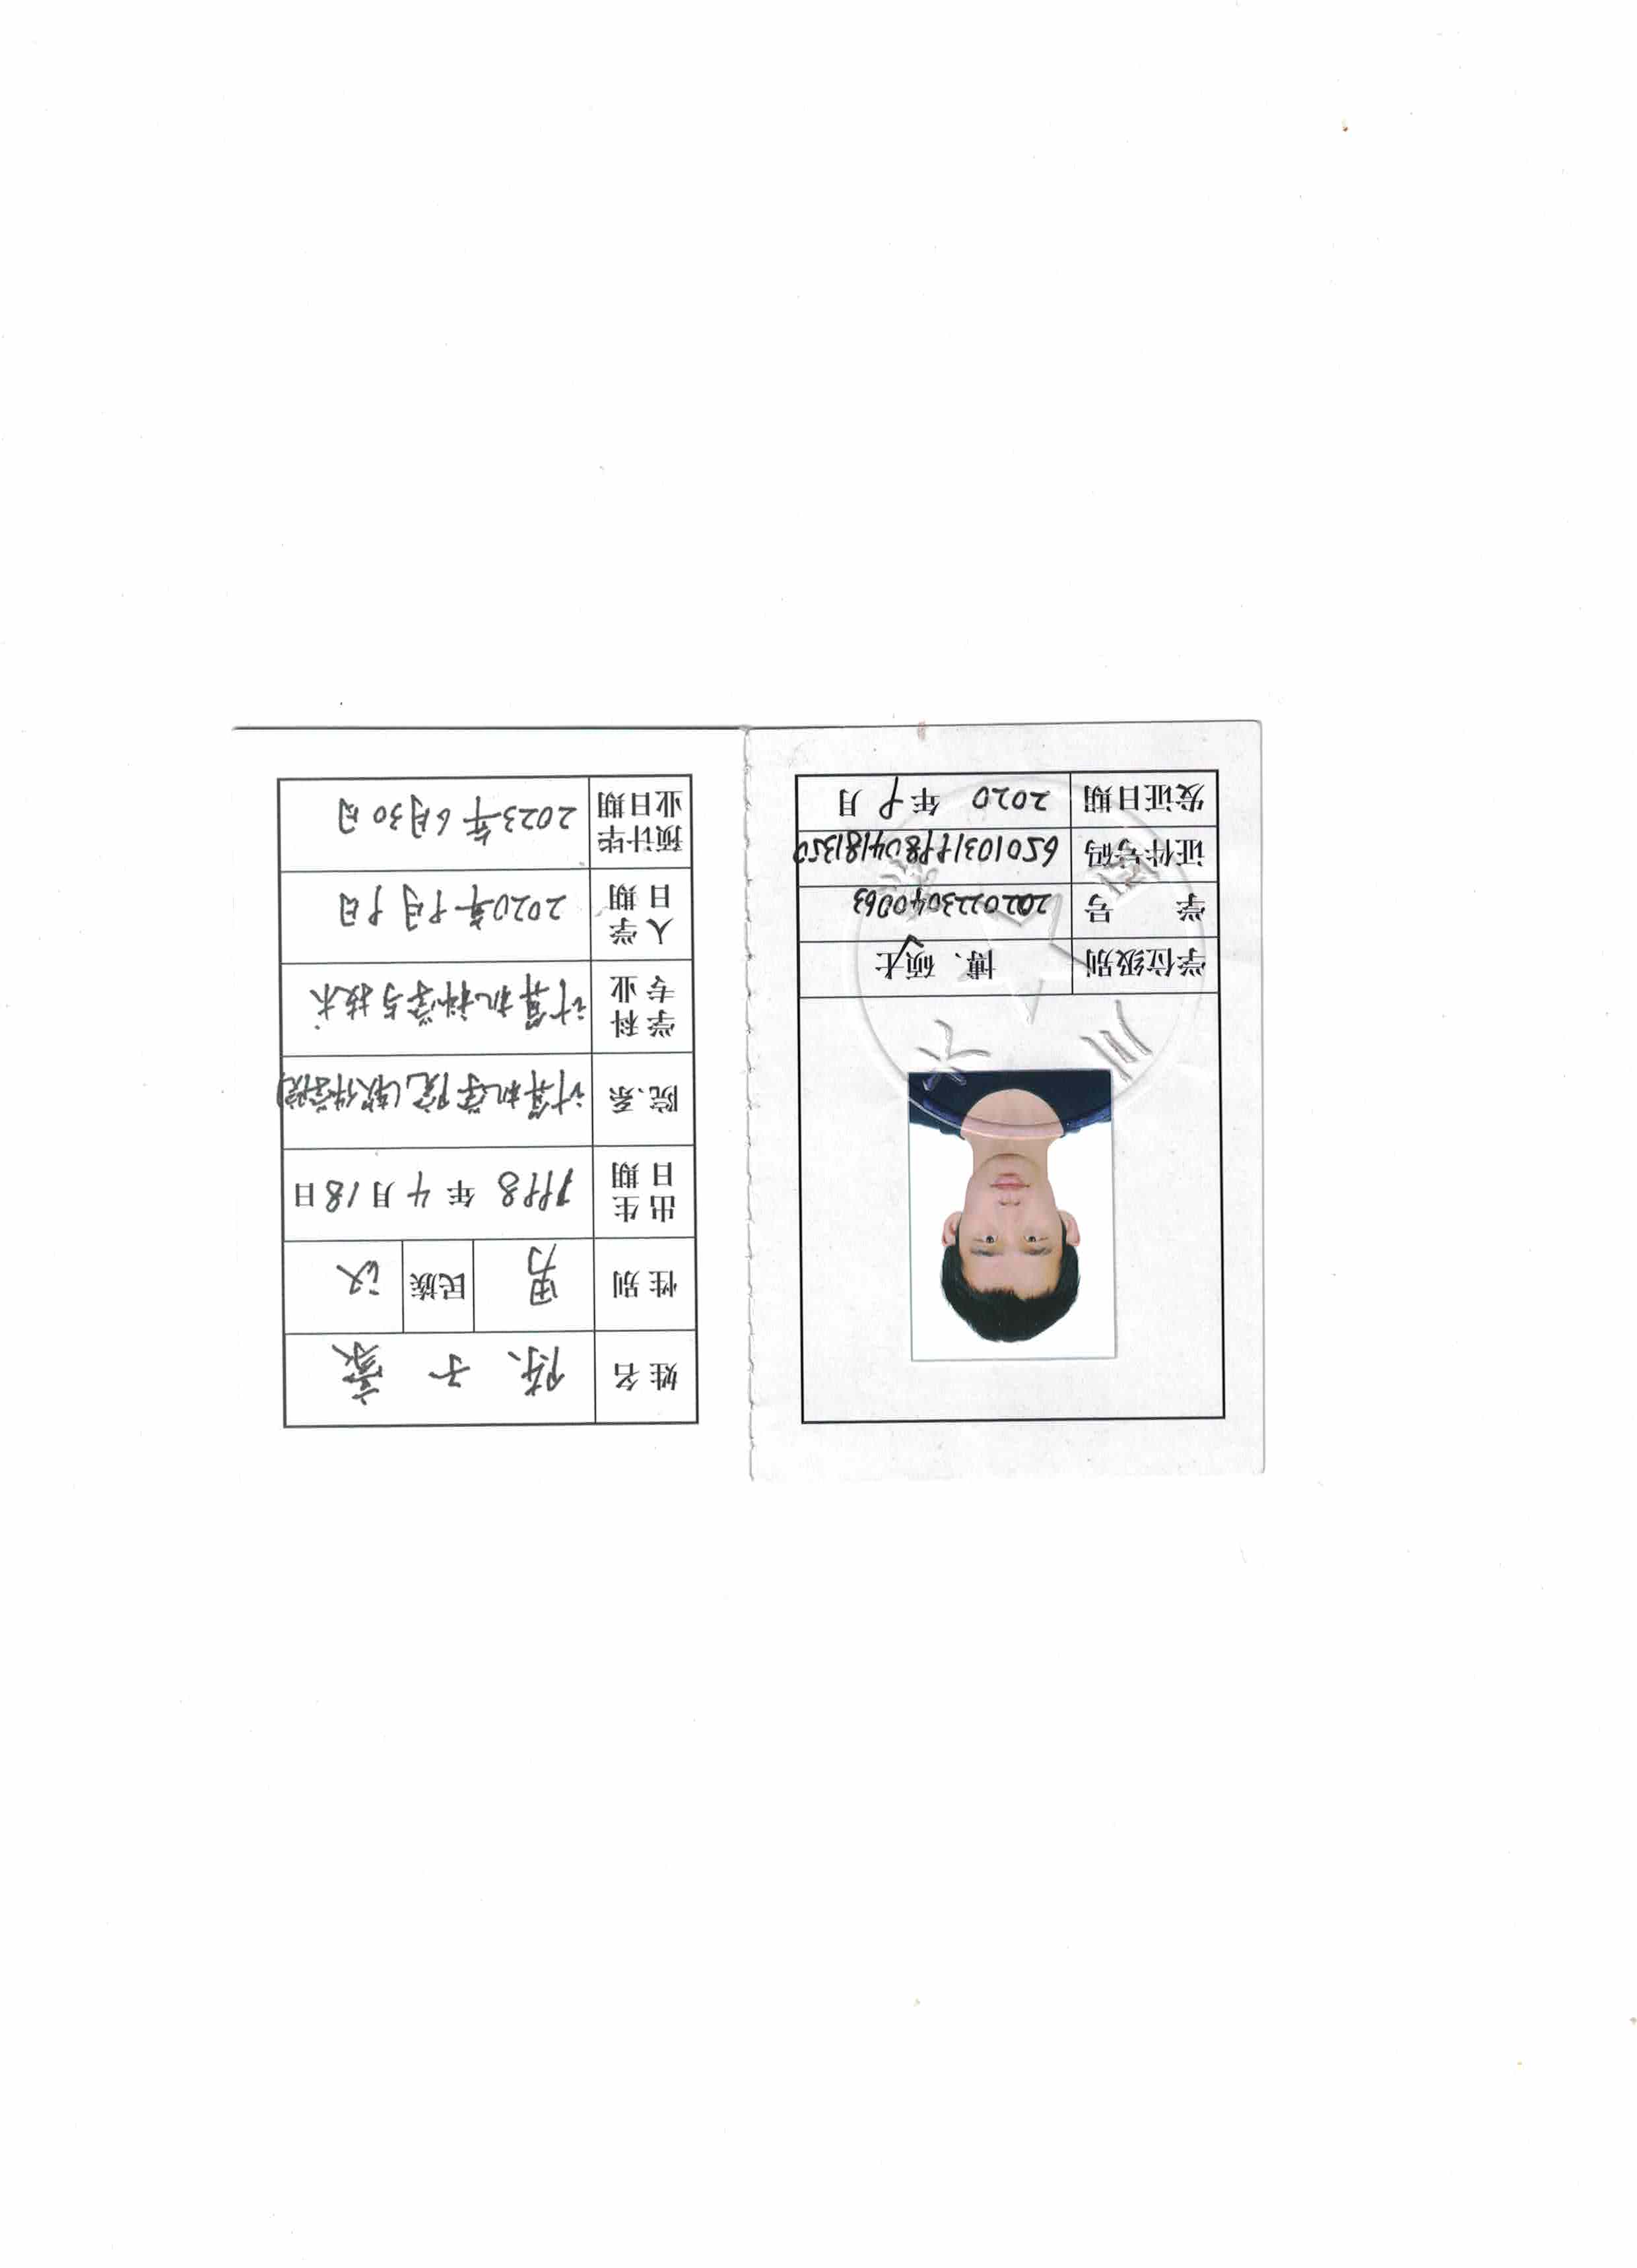 学位级别 博、硕士
学 号 2020223040063
证件号码 650103199804181350
发证日期 2020 年 9 月
姓名 陈子豪
性别 男 民族 汉
出生日期 1998 年 4 月 18 日
院、系 计算机学院(软件学院)
学科专业 计算机科学与技术
入学日期 2020年9月9日
预计毕业日期 2023年6月30日